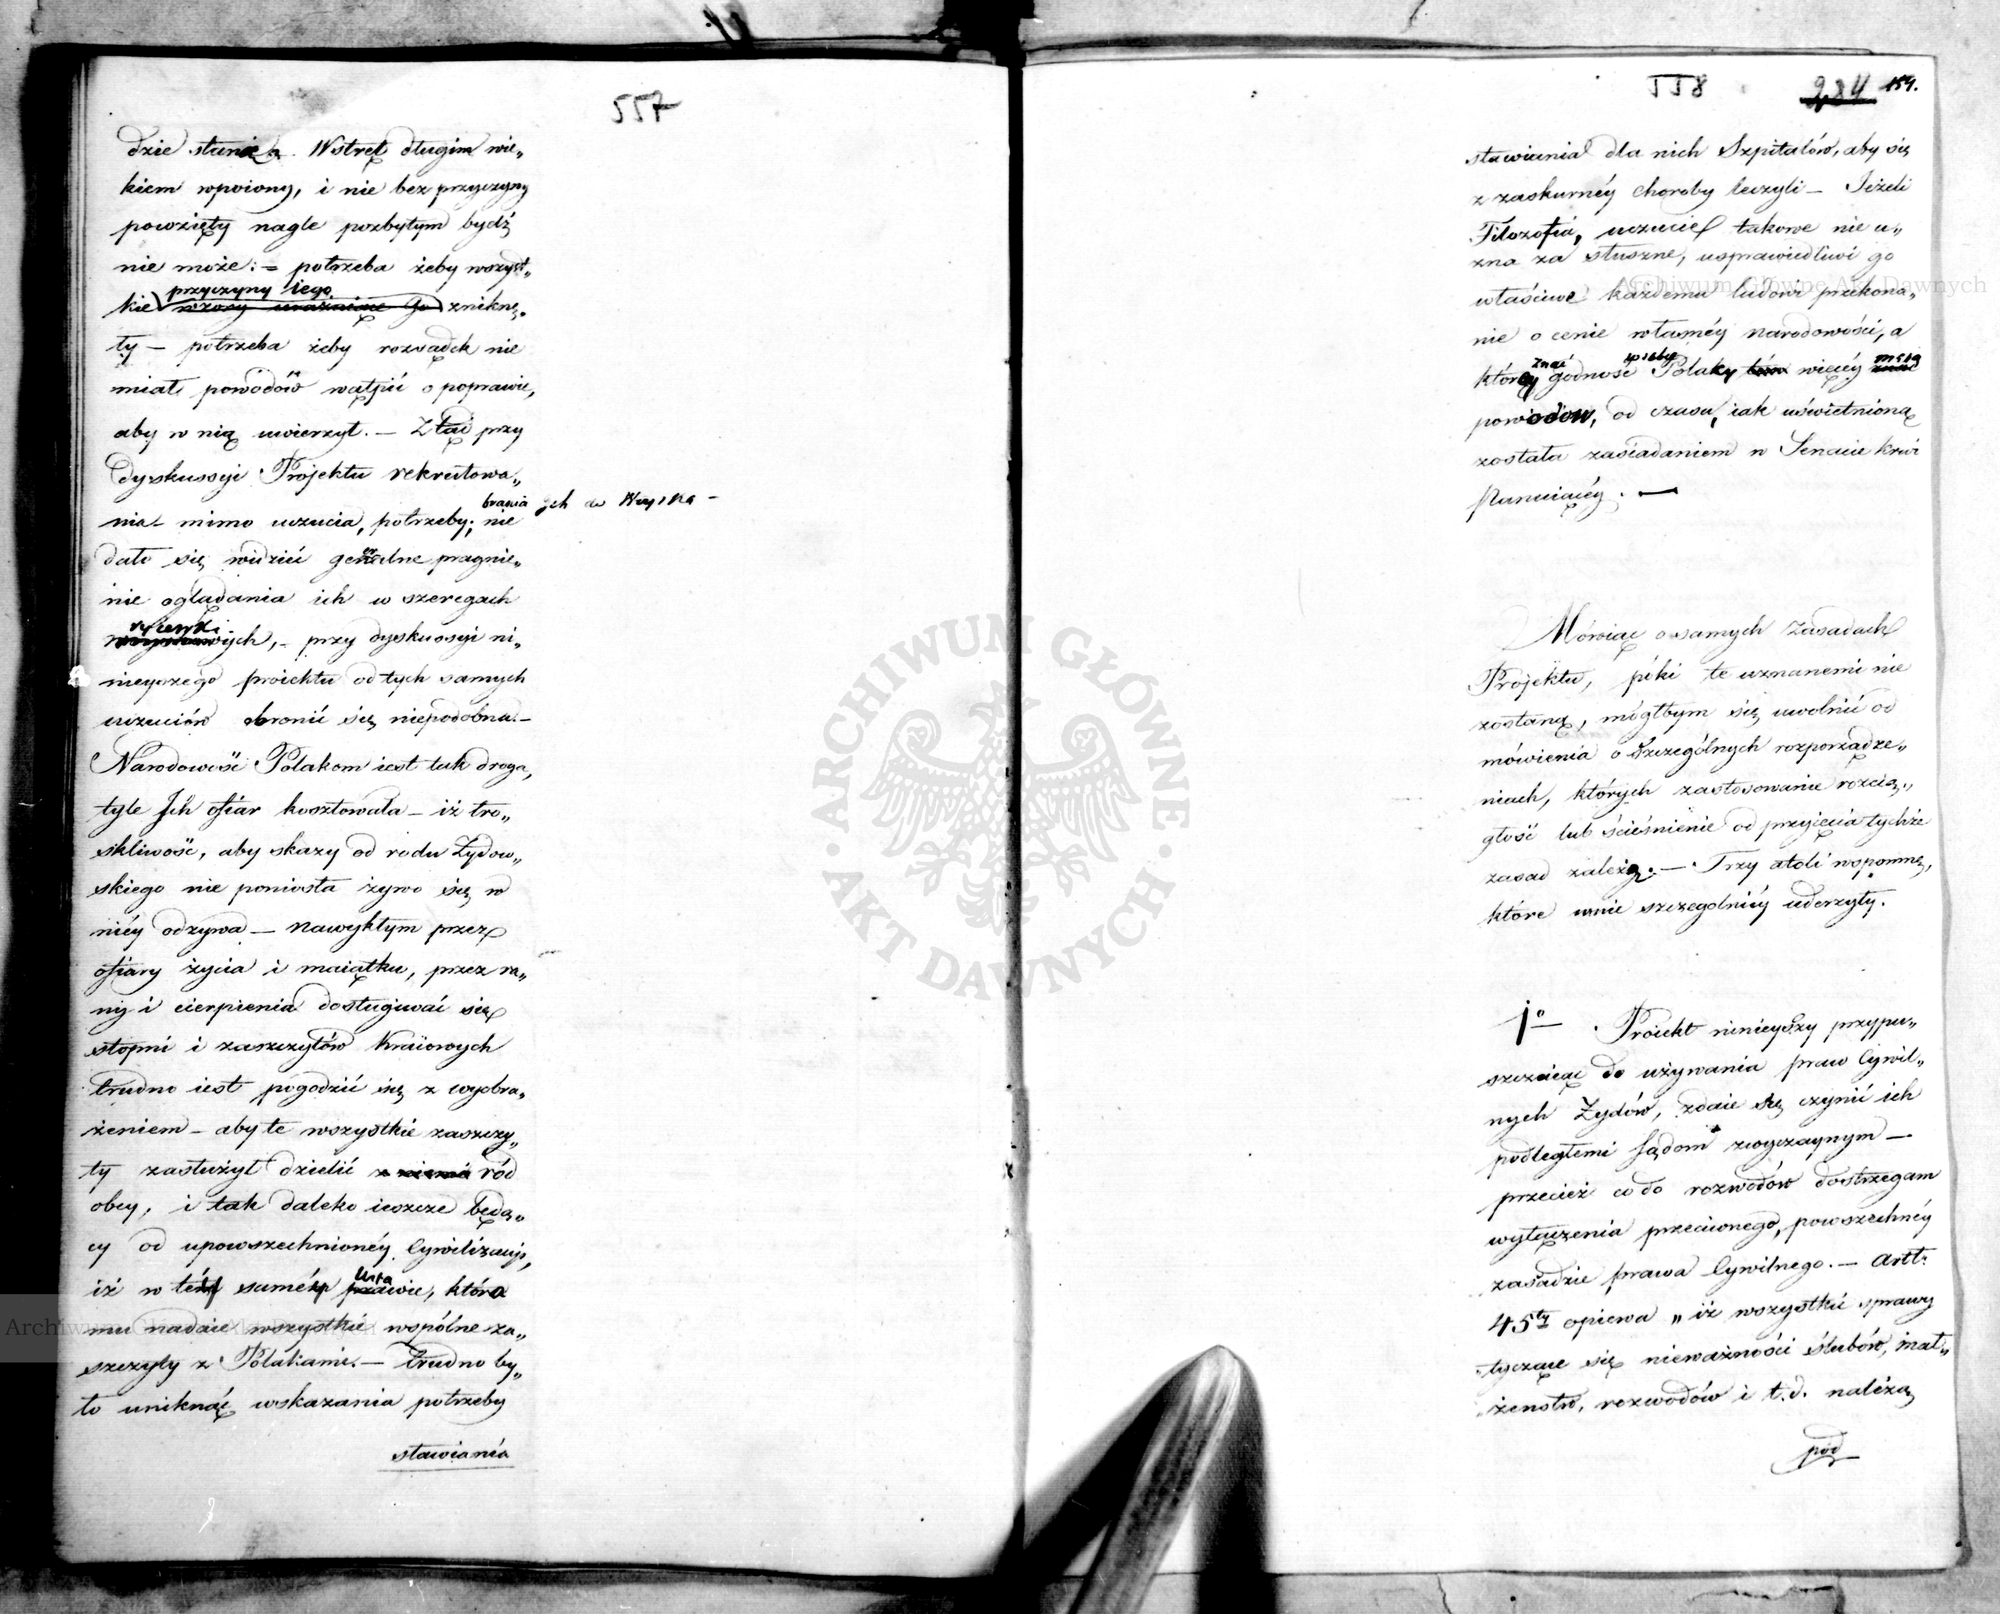 557
dzie stanie. Wstręt długim wie„
kiem wpoiony, i nie bez przyczyny
powzięty nagle pozbytym bydź
nie może: = potrzeba żeby wszyst„
przyczyny iego
kie znikнę„
ły — potrzeba żeby rozsądek nie
miał powodów wątpić o poprawie,
aby w nią uwierzył. — Ztąd przy
Dyskussyi Projektu rekrutowa„
brania ych do Woyska —
nia — mimo uczucia, potrzeby; nie
dało się widzieć generalne pragnie„
nie oglądania ich w szeregach
przy dyskussyi ni„
nieyszego proiektu od tych samych
uczuciów obronić się niepodobna —
Narodowość Polakom iest tak droga,
tyle Jch ofiar kosztowała — iż tro„
skliwość, aby skazy od rodu Żydow„
skiego nie poniosła żywo się w
niéy odzywa — nawykłym przez
ofiary życia i maiątku, przez ra„
ny i cierpienia dosługiwać się
stopni i zaszczytów Kraiowych
trudno iest pogodzić się z wyobra„
żeniem — aby te wszystkie zaszczy„
ty zasłużył dzielić ród
obcy, i tak daleko ieszcze będą„
cy od upowszechnionéy Cywilizacyi,
iż w téy saméy prawie, która
mu nadaie wszystkie wspólne za„
szczyty z Polakami. — Trudno by„
ło uniknąć wskazania potrzeby
stawiania
558
284 154.
stawiania dla nich Szpitalów, aby się
z zaskurnéy choroby leczyli — Jeżeli
Filozofia, uczucie takowe nie u„
zna za słuszne, usprawiedliwi go
właściwe każdemu ludowi przekona„
nie o cenie własnéy narodowości, a
znać w sobie maią
któréy godność Polaky więcéy
powodow, od czasu, iak uświetnioną
została zasiadaniem w Senacie krwi
Panuiącéy. —
Mówiąc o samych zasadach
Projektu, póki te uznanemi nie
zostaną, mógłbym się uwolnić od
mówienia o szczególnych rozporządze„
niach, których zastosowanie rozcią„
głość lub ścieśnienie od przyięcia tychże
zasad zależą. — Trzy atoli wspomnę,
które mnie szczególniéy uderzyły.
1o — Proiekt ninieyszy przypu„
szczaiąc do używania praw Cywil„
nych Żydów, zdaie się czynić ich
podległemi Sądom zwyczaynym —
przecież co do rozwodów dostrzegam
wyłączenia przeciwnego, powszechnéy
zasadzie prawa Cywilnego. — Artt.
45ty opiewa „iż wszystkie sprawy
„tyczące się nieważności ślubów, mał„
„żeństw, rozwodów i t.d. należą
pod
ARCHIWUM GŁÓWNE · AKT DAWNYCH ·
Archiwum Główne Akt Dawnych